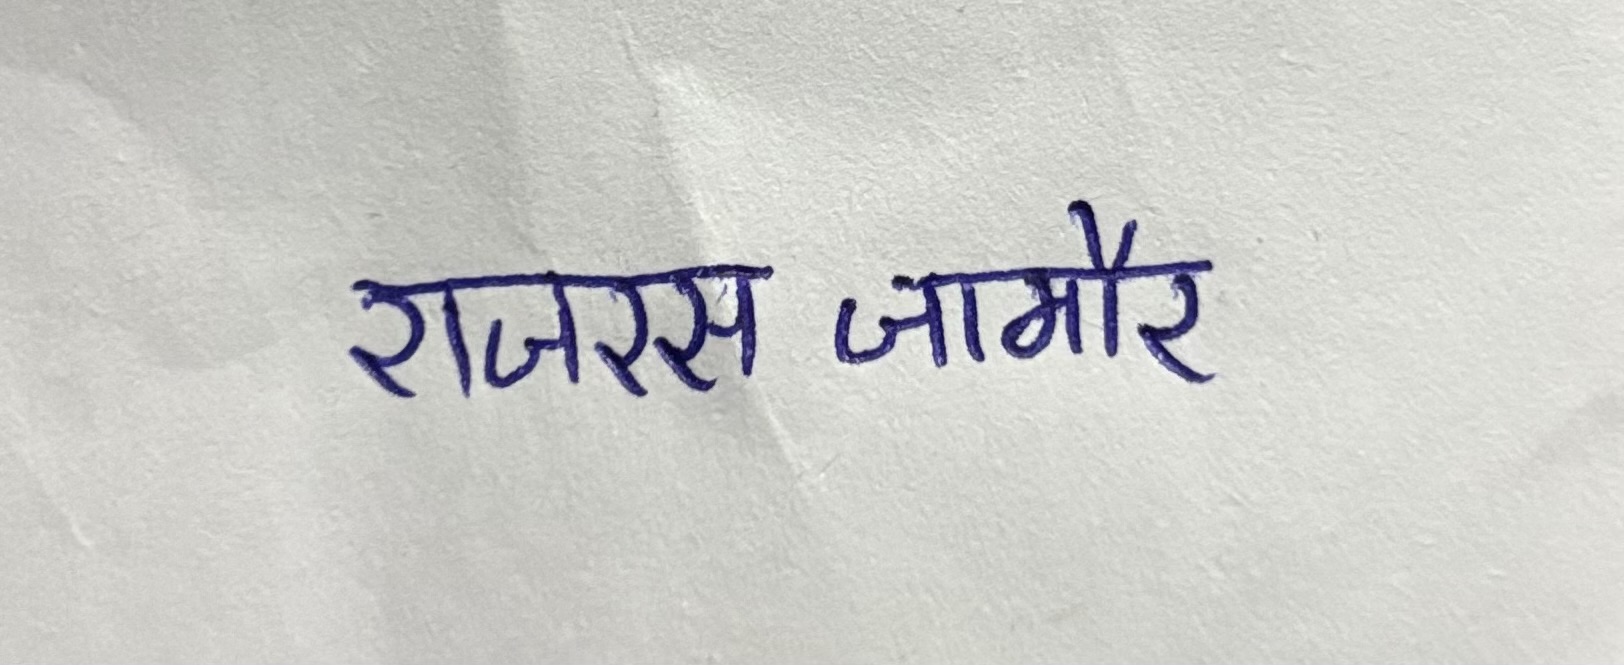 राजरस जामौर